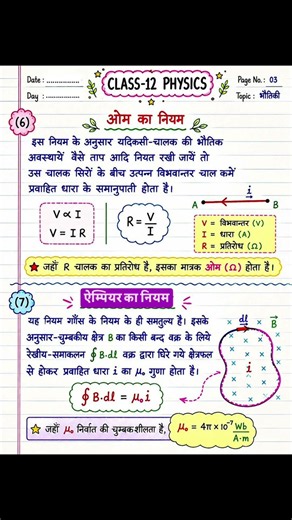 Date : ................
CLASS-12 PHYSICS
Page No. : 03
Day : ................
Topic : भौतिकी
(6) ओम का नियम
इस नियम के अनुसार यदिकसी-चालक की भौतिक
अवस्थायें वैसे ताप आदि नियत रखी जायें तो
उस चालक सिरों के बीच उत्पन्न विभवान्तर चाल कमें
प्रवाहित धारा के समानुपाती होता है।
i
A B
V ∝ I
V = I R
R = V/I
V = विभवान्तर (V)
I = धारा (A)
R = प्रतिरोध (Ω)
★ जहाँ R चालक का प्रतिरोध है, इसका मात्रक ओम (Ω) होता है।
(7) ऐम्पियर का नियम
यह नियम गाॅस के नियम के ही समतुल्य है। इसके
अनुसार-चुम्बकीय क्षेत्र B का किसी बन्द वक्र के लिये
रेखीय-समाकलन ∮ B·dl वक्र द्वारा घिरे गये क्षेत्रफल
से होकर प्रवाहित धारा i का μ₀ गुणा होता है।
dl B
i
∮ B.dl = μ₀i
★ जहाँ μ₀ निर्वात की चुम्बकशीलता है,
μ₀ = 4π × 10⁻⁷ Wb/A·m